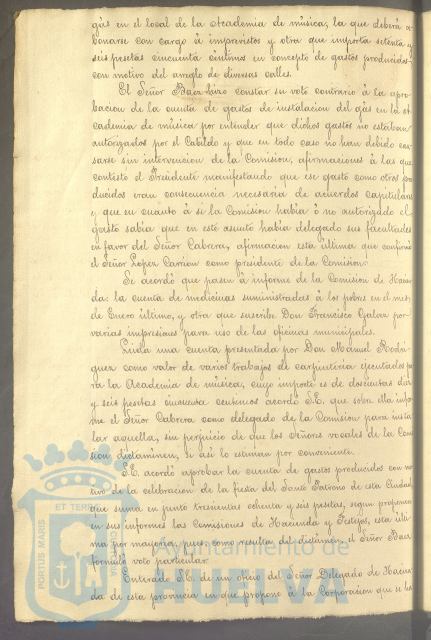 gás en el local de la Academia de música, la que deberá a-
bonarse con cargo á imprevistos y otra que importa setenta y
seis pesetas cincuenta centimos en concepto de gastos producidos
con motivo del arreglo de diversas calles.
El Señor Baez hizo constar su voto contrario á la apro-
bacion de la cuenta de gastos de instalacion del gás en la A-
cademia de música por entender que dichos gastos no estaban
autorizados por el Cabildo y que en todo caso no han debido cau-
sarse sin intervencion de la Comision, afirmaciones á las que
contestó el Presidente manifestando que ese gasto como otros pro
ducidos eran consecuencia necesaria de acuerdos capitulares
y que en cuanto á si la Comision habia ó no autorizado el
gasto sabia que en este asunto habia delegado sus facultades
en favor del Señor Cabrera, afirmacion esta última que confirmó
el Señor Lopez Carrion como presidente de la Comision.
Se acordó que pasen á informe de la Comision de Hacien
da: la cuenta de medicinas suministradas á los pobres en el mes
de Enero último, y otra que suscribe Don Francisco Galvez por
varias impresiones para uso de las oficinas municipales.
Leida una cuenta presentada por Don Manuel Rodri-
guez como valor de varios trabajos de carpinteria ejecutados pa
ra la Academia de música, cuyo importe es de doscientas diez
y seis pesetas cincuenta centimos acordó S.E. que sobre ella infor
me el Señor Cabrera como delegado de la Comision para insta
lar aquella, sin perjuicio de que los Señores vocales de la Comi
sion dictaminen, si asi lo estiman por conveniente.
S.E. acordó aprobar la cuenta de gastos producidos con mo
tivo de la celebracion de la fiesta del Santo Patrono de esta Ciudad,
que suma en junto trescientas ochenta y seis pesetas, segun proponen
en sus informes las Comisiones de Hacienda y Festejos, esta últi
ma por mayoria, pues como resulta del dictámen, el Señor Baez
formuló voto particular.
Enterado S.E. de un oficio del Señor Delegado de Hacien
da de esta provincia en que propone á la Corporacion que se la
PORTUS MARIS ET TERR
Ayuntamiento de
HUELVA